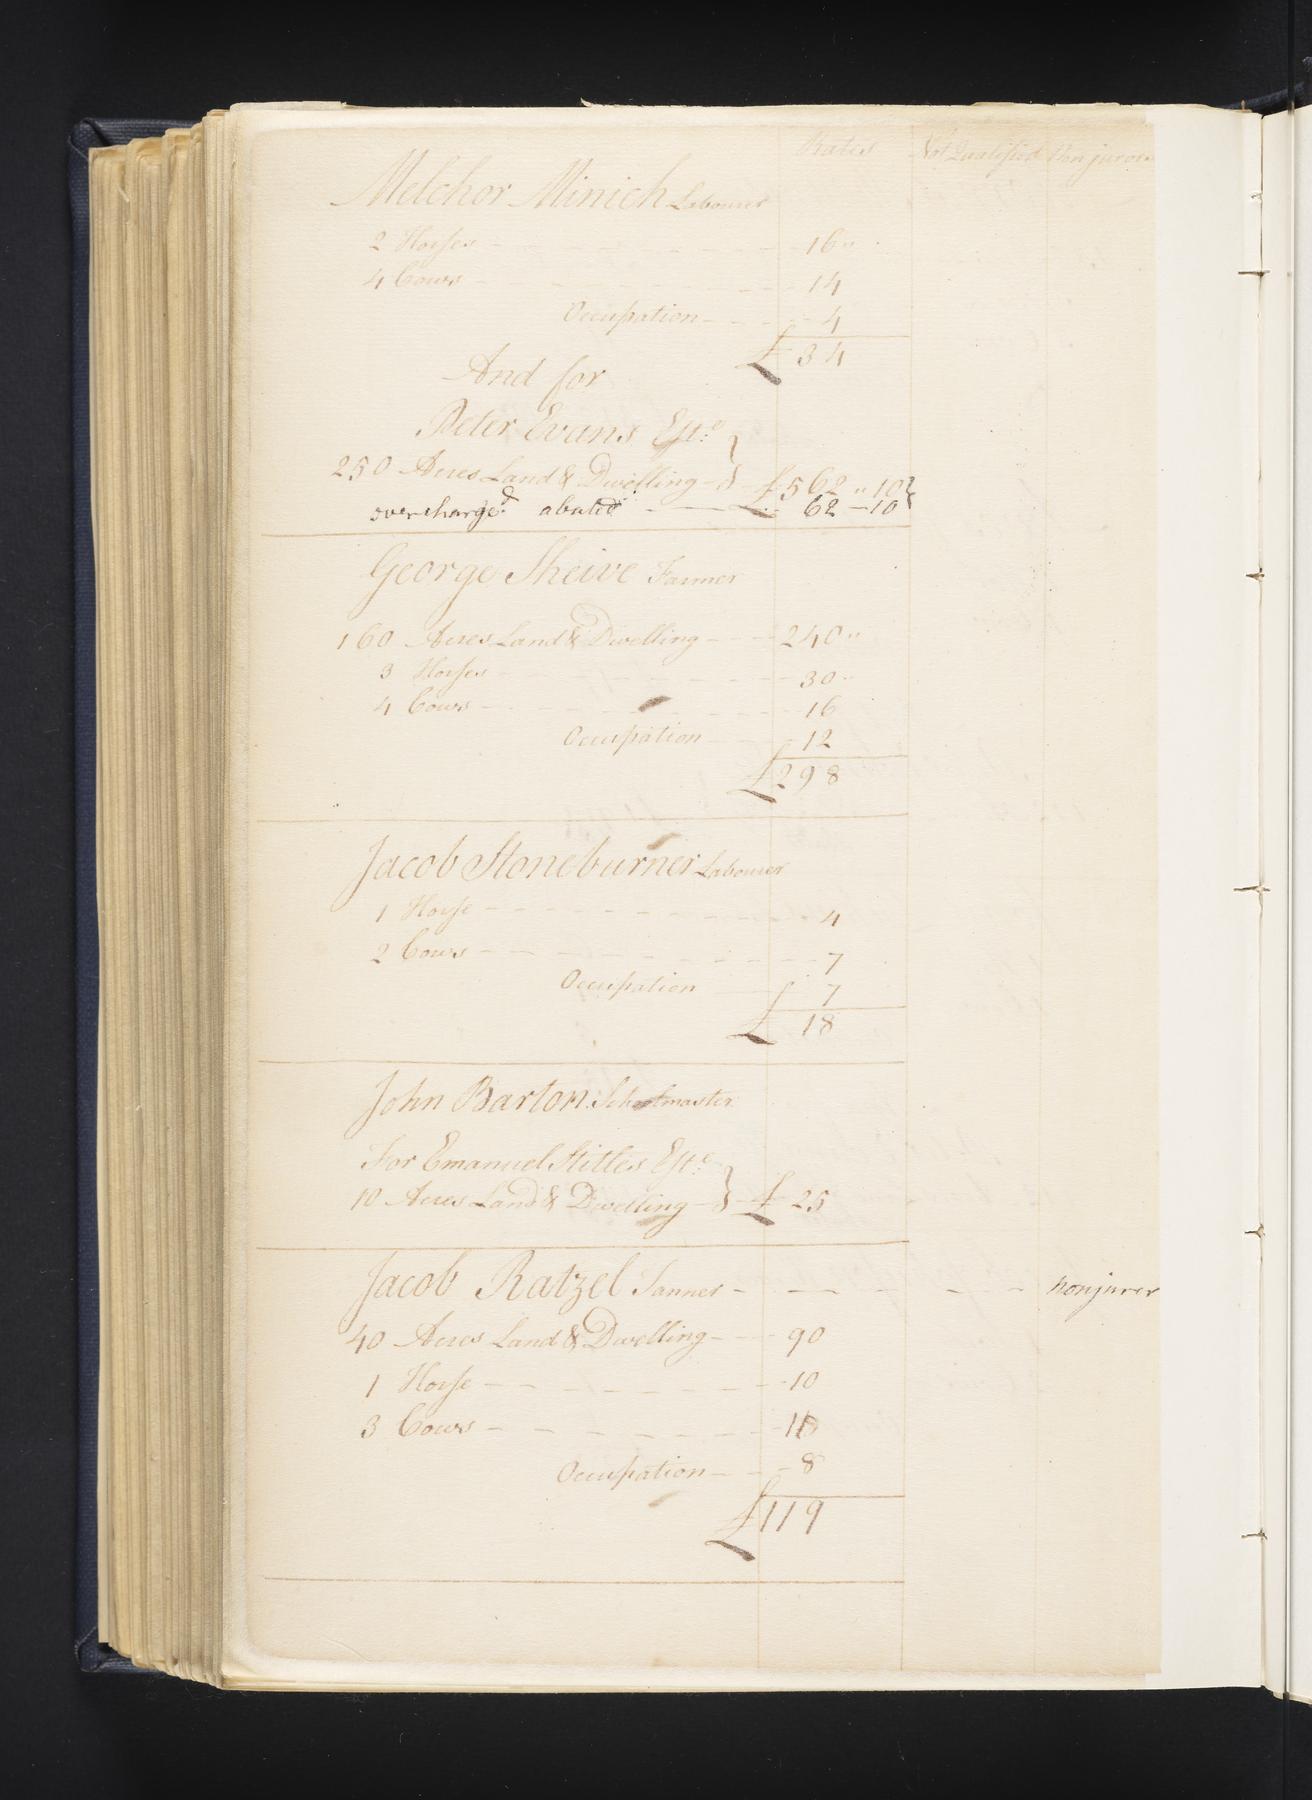 Rates Not Qualified Nonjurors
Melchor Minich Labourer
2 Horses 16 "
4 Cows 14
Occupation 4
£ 34
And for
Peter Evans Est:e
250 Acres Land & Dwelling £ 562 " 10
overcharged abated 62 - 10
George Sheive Farmer
160 Acres Land & Dwelling 240 "
3 Horses 30
4 Cows 16
Occupation 12
£ 298
Jacob Stoneburner Labourer
1 Horse 4
2 Cows 7
Occupation 7
£ 18
John Barton Schoolmaster
For Emanuel Stitles Est:e
10 Acres Land & Dwelling £ 25
Jacob Ratzel Tanner nonjuror
40 Acres Land & Dwelling 90
1 Horse 10
3 Cows
Occupation 8
£ 119